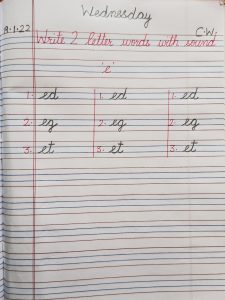 Wednesday
C.W.
Write 2 letter words with sound
'e'
1. ed 1. ed 1. ed
2. eg 2. eg 2. eg
3. et 3. et 3. et